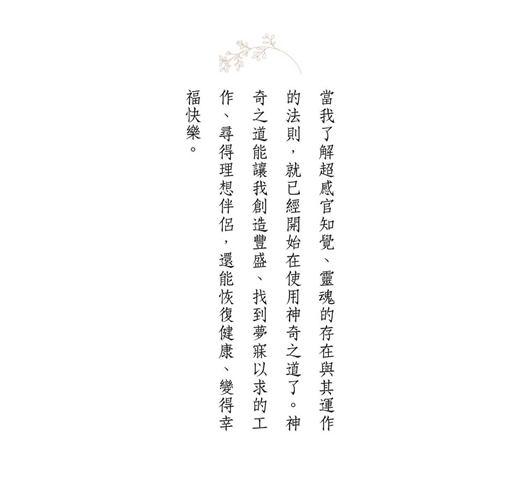 當我了解超感官知覺、靈魂的存在與其運作
的法則，就已經開始在使用神奇之道了。神
奇之道能讓我創造豐盛、找到夢寐以求的工
作、尋得理想伴侶，還能恢復健康、變得幸
福快樂。